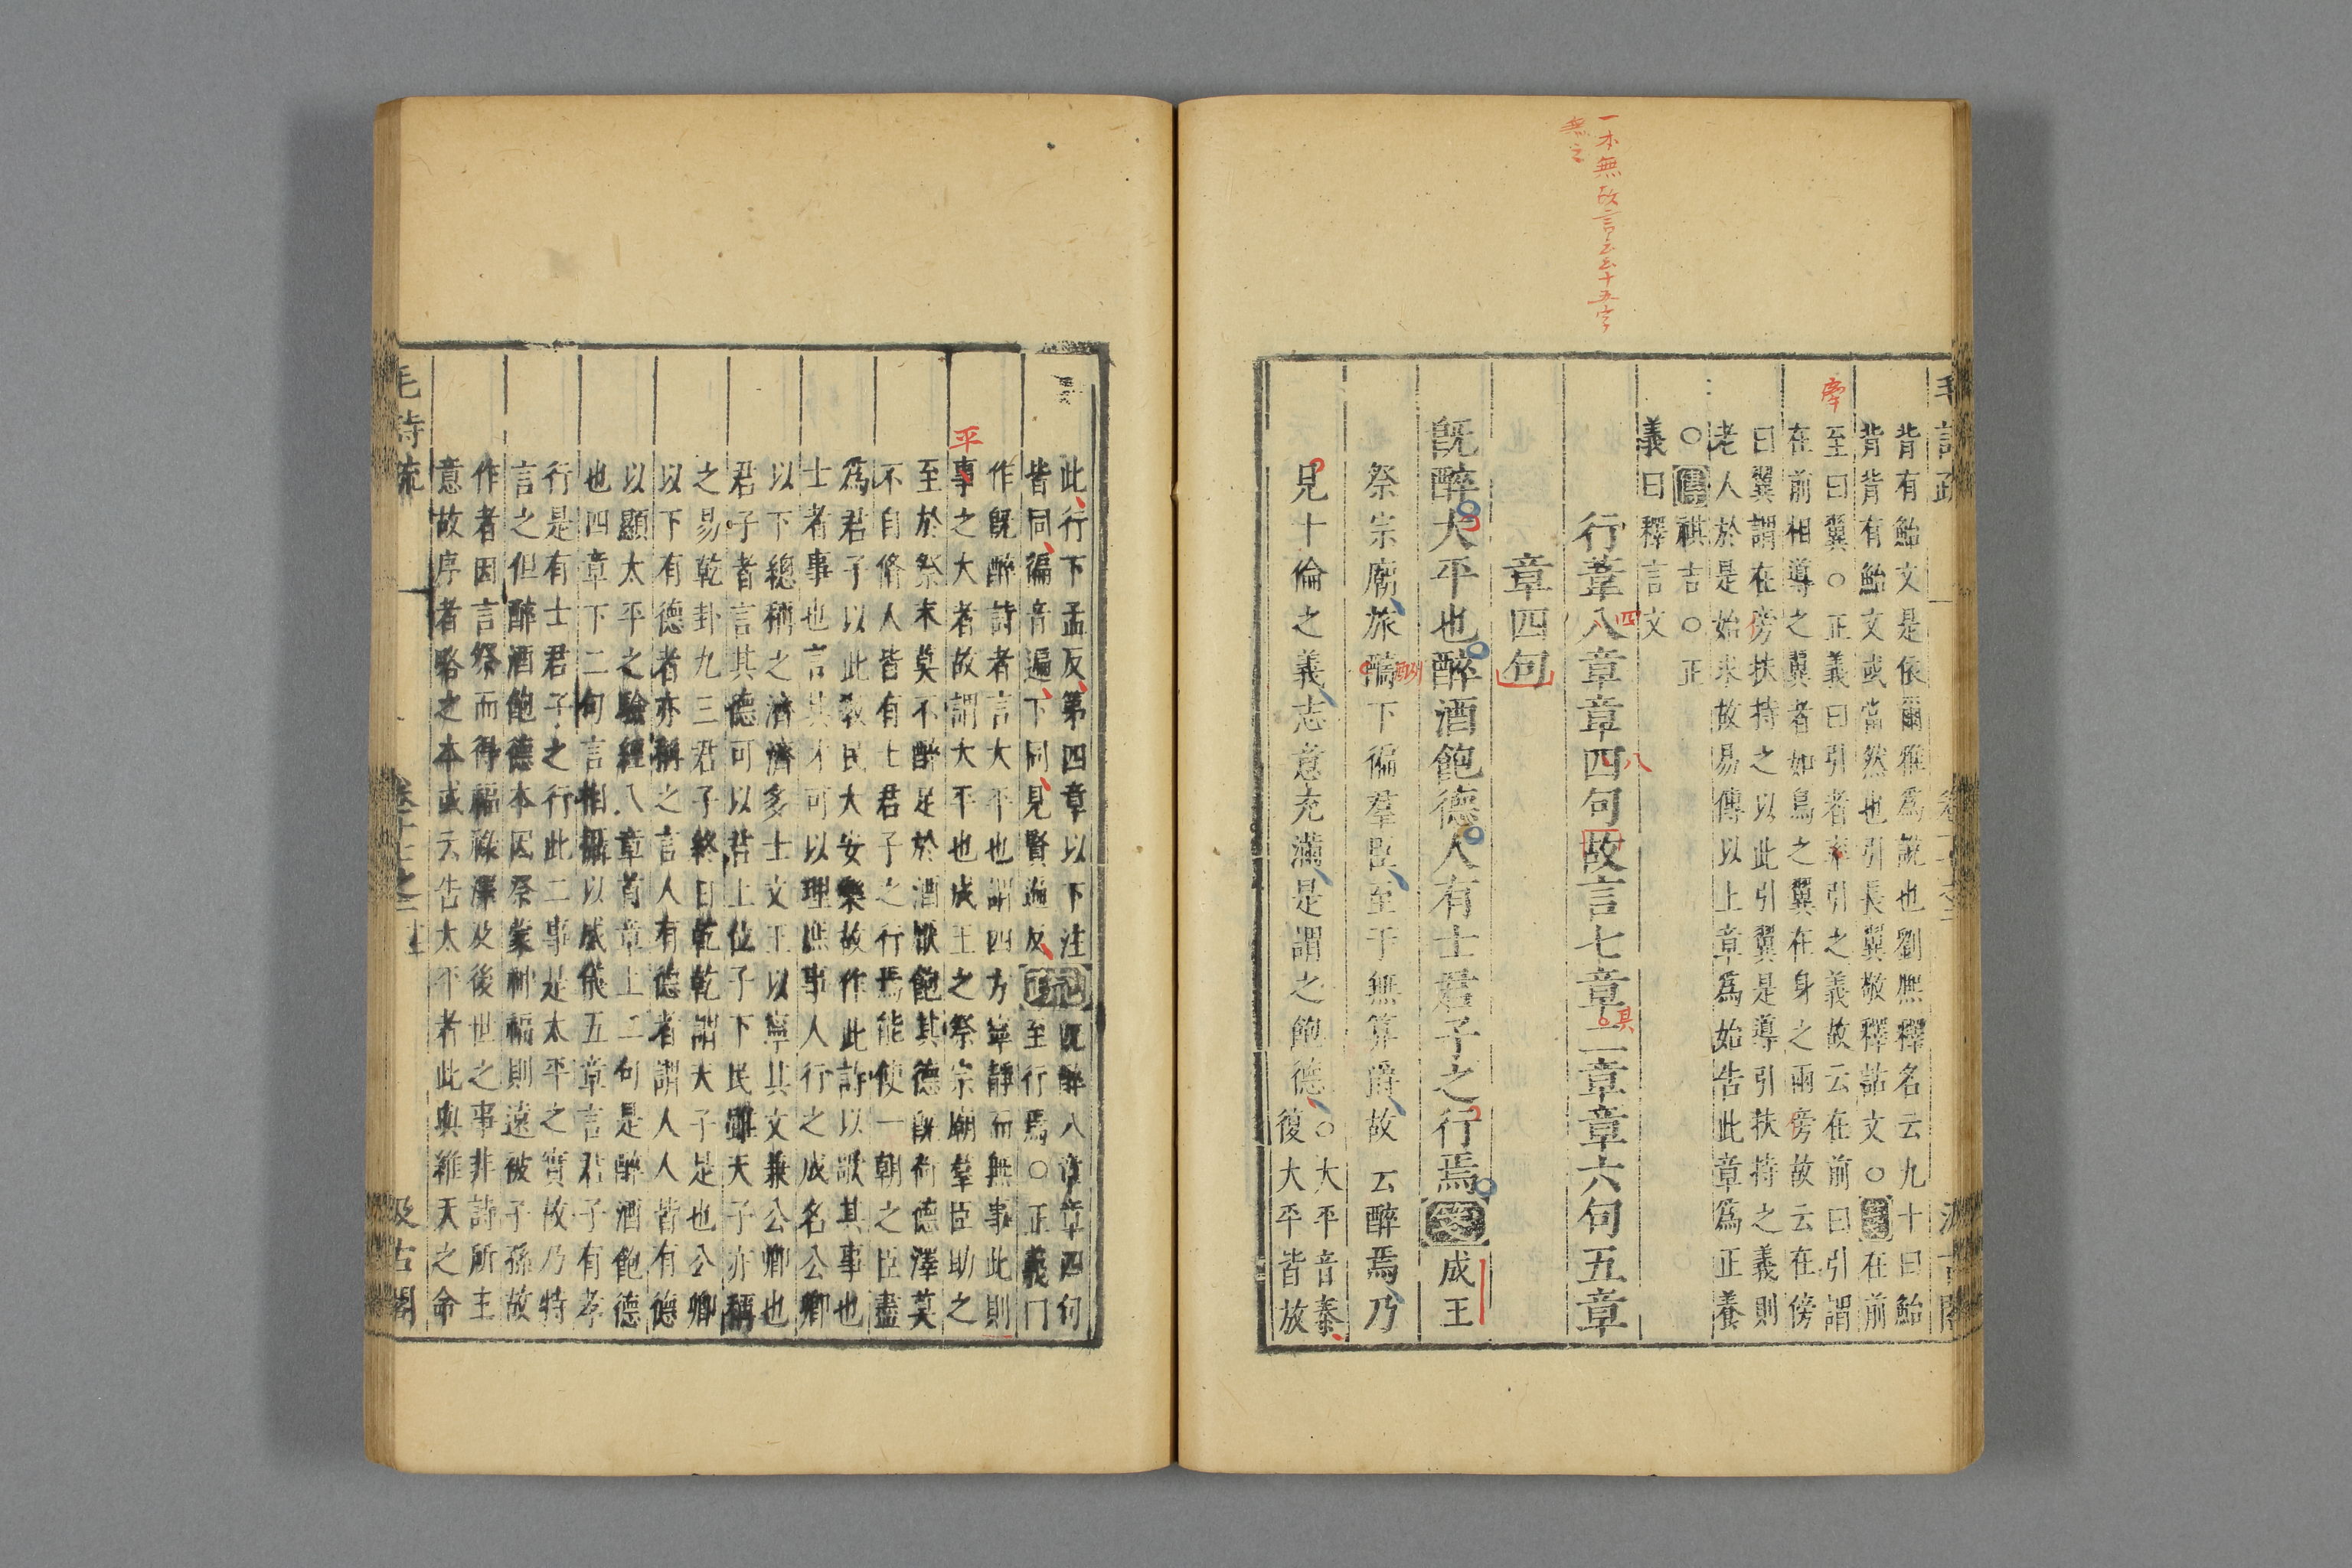 一本無故言云云十五字
無之
毛詩疏
背有鮐文是依爾雅爲說也劉熙釋名云九十曰鮐
背背有鮐文或當然也引長翼敬釋詁文○在前
至曰翼○正義曰引者牽引之義故云在前曰引謂
牽
在前相導之翼者如鳥之翼在身之兩傍故云在傍
曰翼謂在傍扶持之以此引翼是導引扶持之義則
老人於是始求故易傳以上章爲始告此章爲正養
○傳祺吉○正
義曰釋言文
行葦八章章四句故言七章二章章六句五章
四
八
其
章四句
既醉大平也醉酒飽德人有士君子之行焉箋成王
祭宗廟旅醻下徧羣臣至于無筭爵故云醉焉乃
酬
見十倫之義志意充滿是謂之飽德○大平音泰
復大平皆放
此行下孟反第四章以下注
皆同徧音遍下同見賢遍反疏既醉八章章四句
至行焉○正義曰
作既醉詩者言大平也謂四方寧靜而無事此則
平
事之大者故謂大平也成王之祭宗廟羣臣助之
至於祭末莫不醉足於酒猒飽其德既荷德澤莫
不自脩人皆有士君子之行焉能使一朝之臣盡
爲君子以此教民大安樂故作此詩以歌其事也
士者事也言其才可以理庶事人行之成名公卿
以下總稱之濟濟多士文王以寧其文兼公卿也
君子者言其德可以君上位子下民雖天子亦稱
之易乾卦九三君子終日乾乾謂天子是也公卿
以下有德者亦稱之言人有德者謂人人皆有德
以顯太平之驗經八章首章上二句是醉酒飽德
也四章下二句言相攝以威儀五章言君子有孝
行是有士君子之行此二事是太平之實故乃特
言之但醉酒飽德本因祭蒙神福則遠被子孫故
作者因言祭而得福祿澤及後世之事非詩所主
意故序者略之本或云告太平者此與維天之命
毛詩疏
卷十七之二
汲古閣